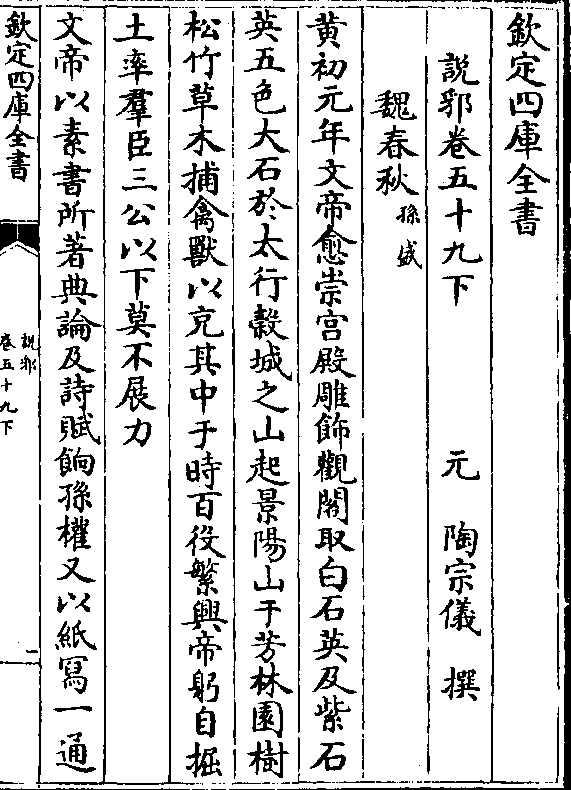 欽定四庫全書
說郛卷五十九下　元　陶宗儀　撰
魏春秋 孫盛
黄初元年文帝愈崇宫殿雕飾觀閣取白石英及紫石
英五色大石於太行穀城之山起景陽山于芳林園樹
松竹草木捕禽獸以充其中于時百役繁興帝躬自掘
土率羣臣三公以下莫不展力
文帝以素書所著典論及詩賦餉孫權又以紙寫一通
欽定四庫全書
說郛
卷五十九下
一